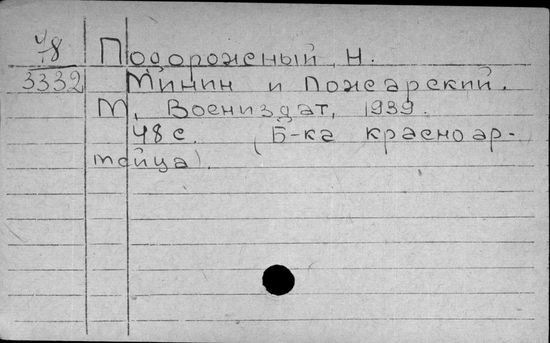 У/8 Подорожный Н.
3332 Минин и Пожарский.
М, Воениздат, 1939.
48 с. (Б-ка красноар-
мейца).